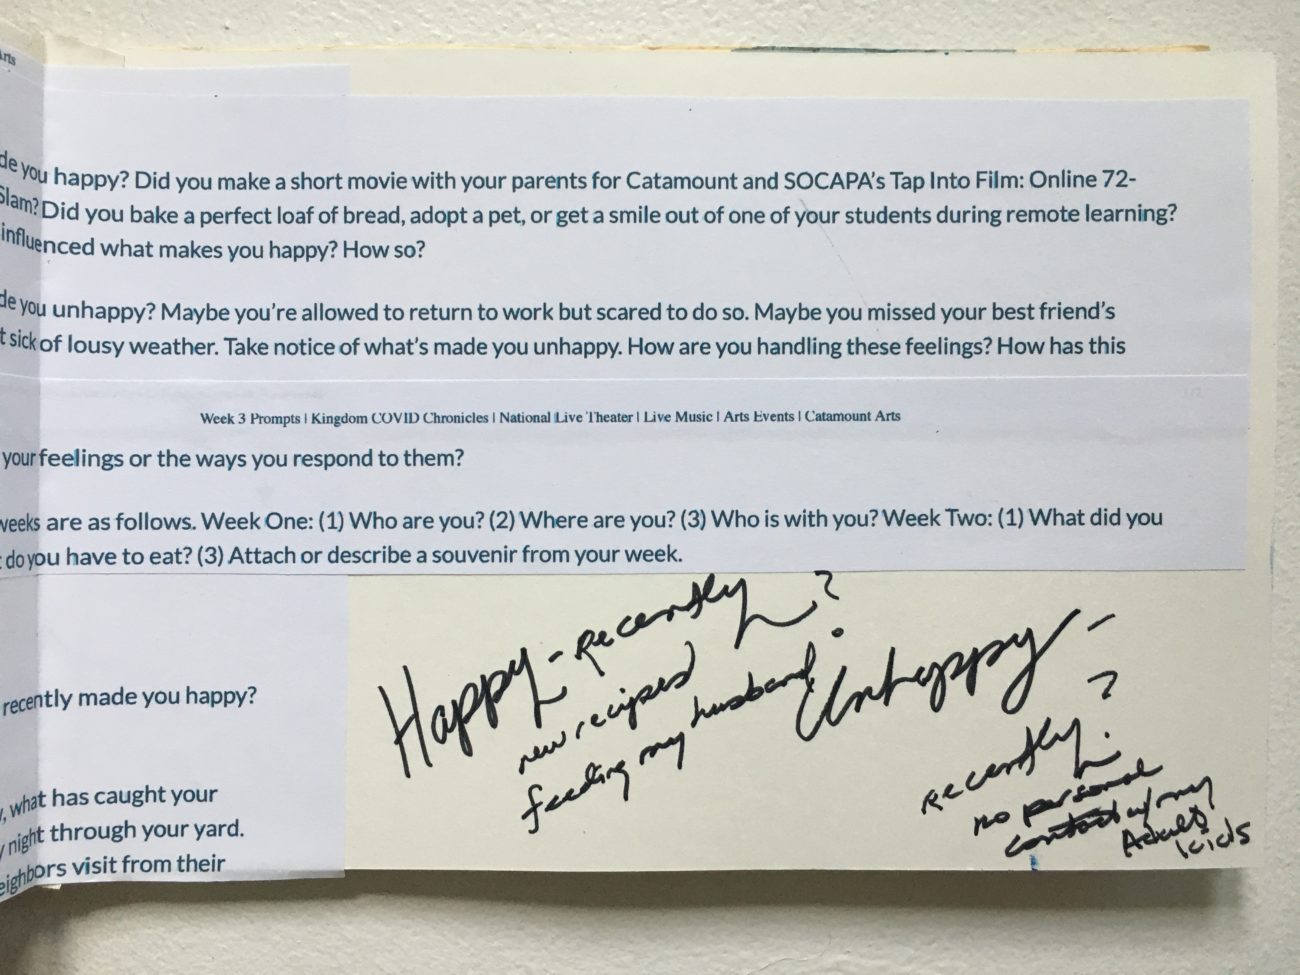 Arts
de you happy? Did you make a short movie with your parents for Catamount and SOCAPA's Tap Into Film: Online 72-
Slam? Did you bake a perfect loaf of bread, adopt a pet, or get a smile out of one of your students during remote learning?
influenced what makes you happy? How so?
de you unhappy? Maybe you're allowed to return to work but scared to do so. Maybe you missed your best friend's
t sick of lousy weather. Take notice of what's made you unhappy. How are you handling these feelings? How has this
Week 3 Prompts | Kingdom COVID Chronicles | National Live Theater | Live Music | Arts Events | Catamount Arts
your feelings or the ways you respond to them?
weeks are as follows. Week One: (1) Who are you? (2) Where are you? (3) Who is with you? Week Two: (1) What did you
do you have to eat? (3) Attach or describe a souvenir from your week.
recently made you happy?
, what has caught your
night through your yard.
eighbors visit from their
Happy - recently?
new recipes
feeding my husband
Unhappy -
recently?
no personal
contact w/ my
Adult kids